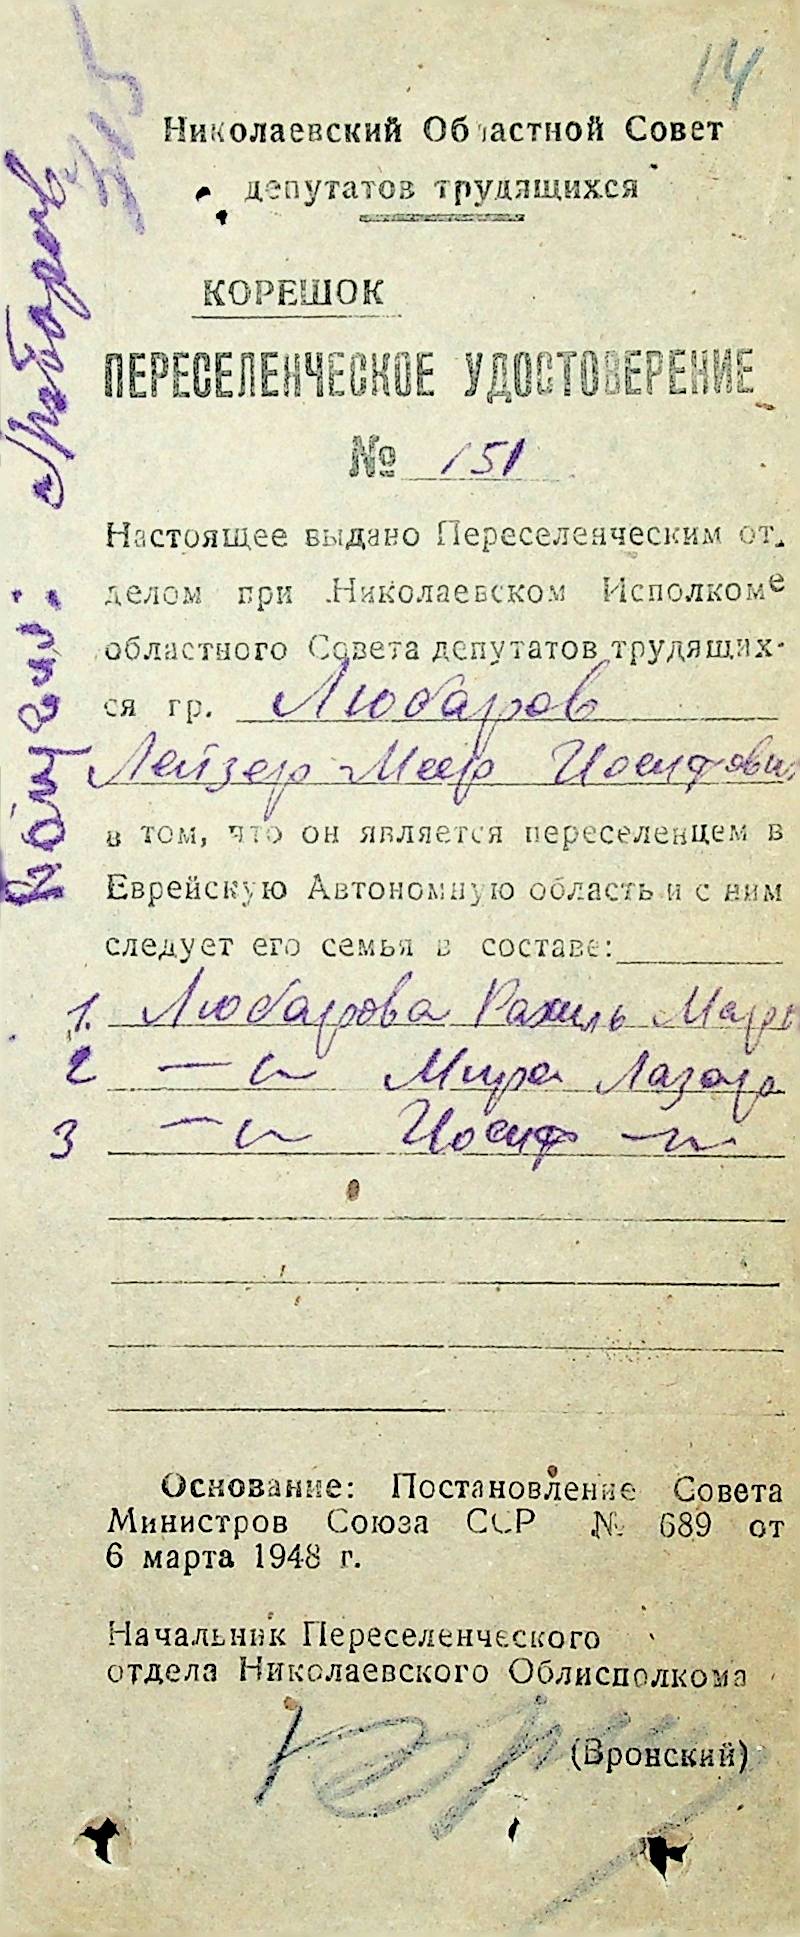 14
315
Николаевский Областной Совет
депутатов трудящихся
КОРЕШОК
ПЕРЕСЕЛЕНЧЕСКОЕ УДОСТОВЕРЕНИЕ
№ 151
Настоящее выдано Переселенческим от-
делом при Николаевском Исполкоме
областного Совета депутатов трудящих-
ся гр. Любаров
Лейзер-Меер Иосифович
в том, что он является переселенцем в
Еврейскую Автономную область и с ним
следует его семья в составе:
1. Любарова Рахиль Марк
2 —〃— Мира Лазар
3 —〃— Иосиф —〃—
Основание: Постановление Совета
Министров Союза ССР № 689 от
6 марта 1948 г.
Начальник Переселенческого
отдела Николаевского Облисполкома
(Вронский)
Получил: